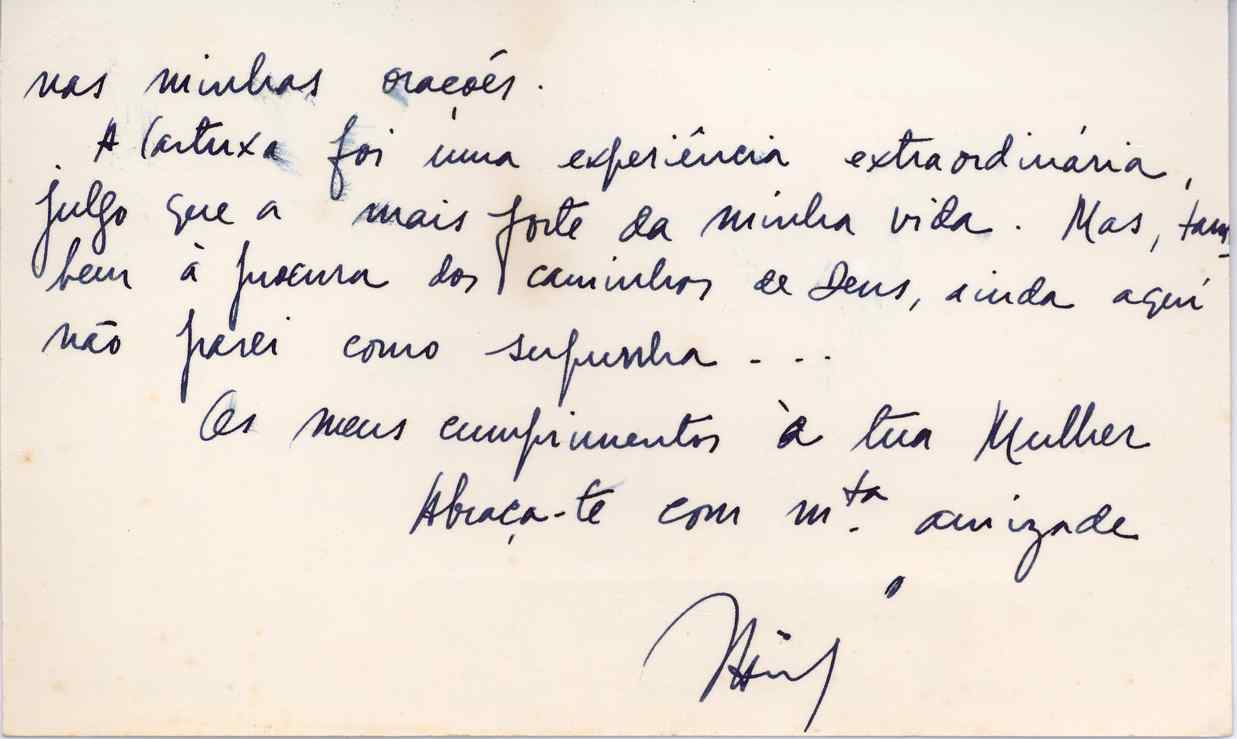 nas minhas orações.
A Cartuxa foi uma experiência extraordinária,
julgo que a mais forte da minha vida. Mas, tam-
bem à procura dos caminhos de Deus, ainda aqui
não parei como supunha ...
Os meus cumprimentos à tua Mulher
Abraça-te com m.ta amizade